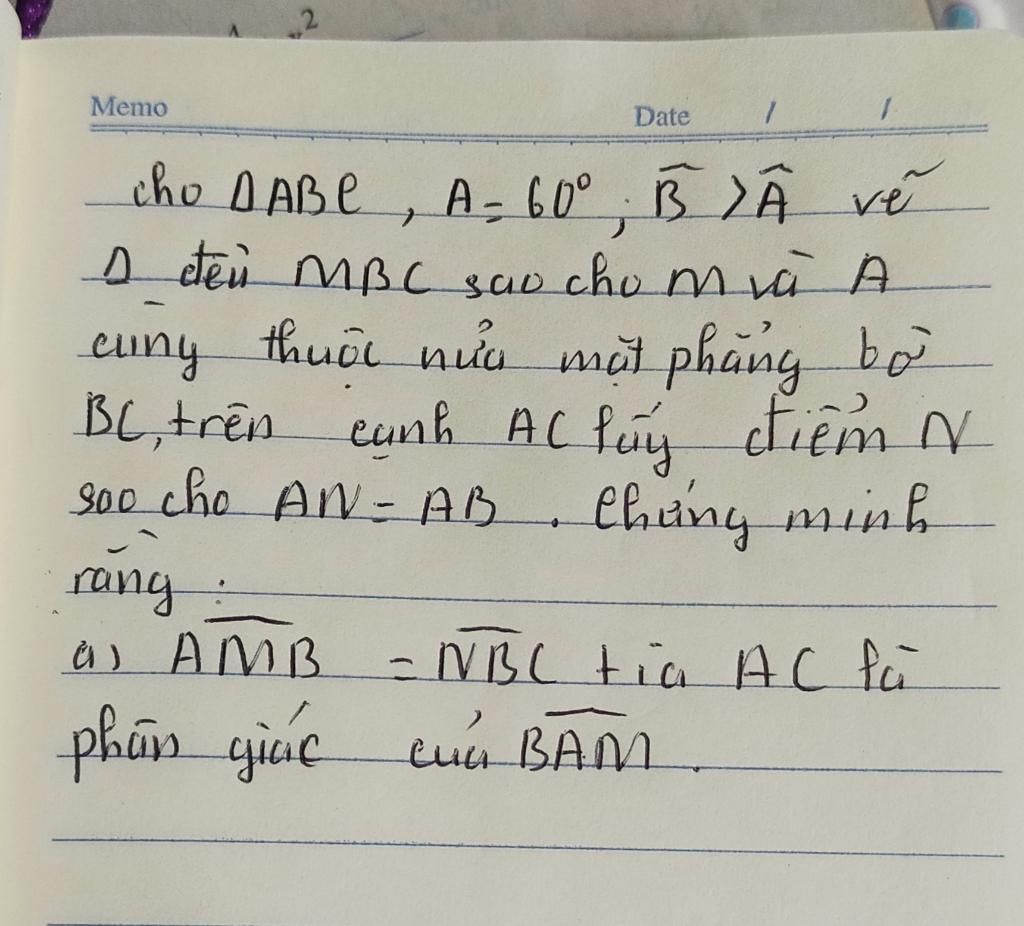 Memo Date / /
cho ΔABC, A = 60°; B̂ > Â vẽ
Δ đều MBC sao cho M và A
cùng thuộc nửa mặt phẳng bờ
BC, trên cạnh AC lấy điểm N
sao cho AN = AB. Chứng minh
rằng:
a) AMB̂ = NBĈ tia AC là
phân giác của BAM̂.